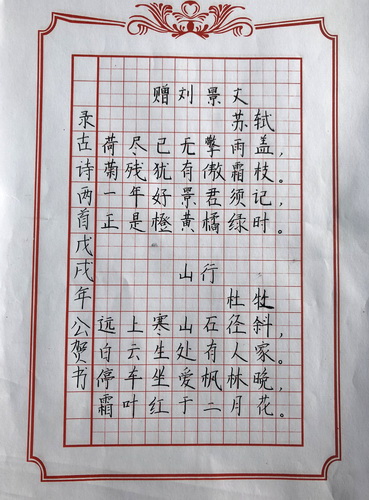 赠刘景文
苏轼
荷尽已无擎雨盖,
菊残犹有傲霜枝。
一年好景君须记,
正是橙黄橘绿时。
山行
杜牧
远上寒山石径斜,
白云生处有人家。
停车坐爱枫林晚,
霜叶红于二月花。
录古诗两首戊戌年公贺书